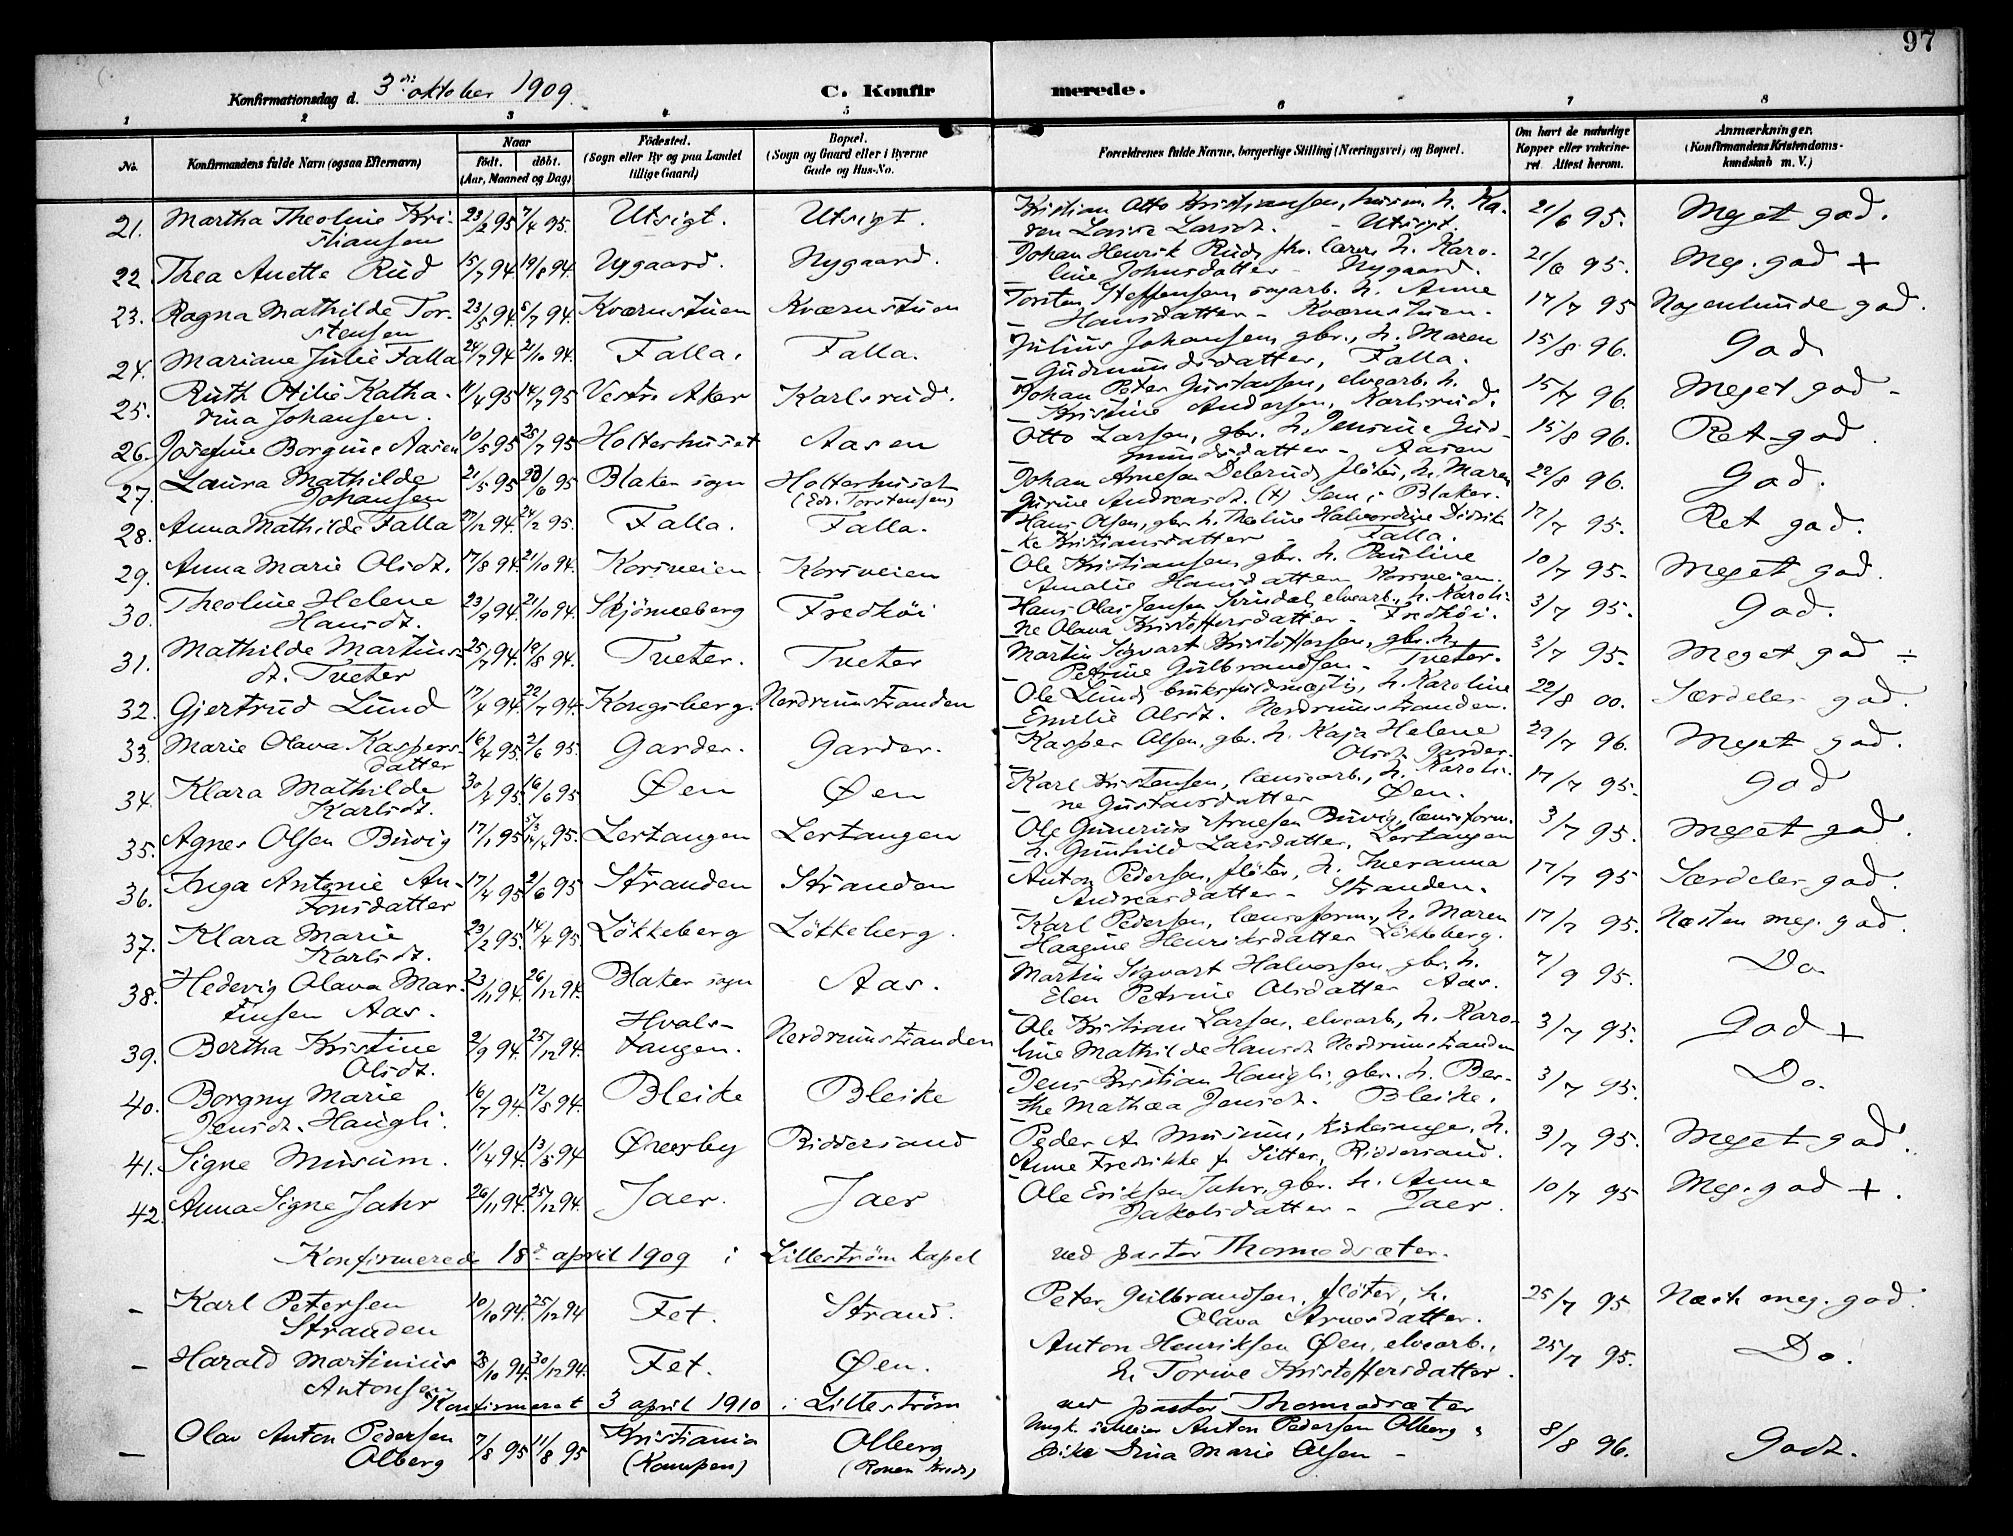 97
Konfirmationsdag d. 3die oktober 1909. C. Konfirmerede.
1 2 3 4 5 6 7 8
No. Konfirmandens fulde Navn (ogsaa Efternavn) Naar født. døbt. (Aar, Maaned og Dag) Fødested. (Sogn eller By og paa Landet tillige Gaard) Bopæl. (Sogn og Gaard eller i Byerne Gade og Hus-No. Forældrenes fulde Navne, borgerlige Stilling (Næringsvei) og Bopæl. Om havt de naturlige Kopper eller vakcineret. Attest herom. Anmærkninger. (Konfirmandens Kristendomskundskab m. V.)
21. Martha Theoline Kri- 23/2 95 7/4 95. Utsigt. Utsigt. Kristian Otto Kristiansen, husm. h. Ka- 21/6 95. Meget god.
stiansen ren Lovise Larsdt. - Utsigt.
22. Thea Anette Rud 15/7 94 19/8 94. Nygaard. Nygaard. Johan Henrik Rud, fhv. lærer, h. Karo- 21/6 95. Meg. god +
line Johnsdatter - Nygaard.
23. Ragna Mathilde Tor- 23/5 94. 8/7 94. Kværnstuen Kværnstuen Torsten Steffensen, sagarb. h. Anne 17/7 95 Nogenlunde god.
stensen Hansdatter - Kværnstuen.
24. Mariane Julie Falla 24/7 94 21/10 94. Falla. Falla. Julius Johansen, gbr., h. Maren 15/8 96. God
Gudmundsdatter, Falla.
25. Ruth Otilie Katha- 11/4 95 14/7 95 Vestre Aker Karlsrud. Johan Peter Gustavsen, elvearb. h. 15/7 96. Meget god -
rina Johansen. Kristine Andersen, Karlsrud.
26. Josefine Borgine Aasen 10/5 95 28/7 95 Holterhuset Aasen Otto Larsen, gbr. h. Jensine Gud- 15/8 96. Ret god.
mundsdatter - Aasen
27. Laura Mathilde 21/5 95 Blaker sogn Holterhuset Johan Arnesen Delerud, fløter, h. Maren 22/8 96. God.
Johansen (Edv. Torstensen) Gurine Andreasdt. (+) Sem i Blaker.
28. Anna Mathilde Falla 27/12 94. 24/2 95. Falla. Falla. Hans Olsen, gbr. h. Theoline Halvordine Didrik- 17/7 95. Ret god.
ke Kristiansdatter - Falla.
29. Anna Marie Olsdt. 17/8 94. 21/10 94. Korsveien Korsveien Ole Kristiansen, gbr. h. Pauline 10/7 95. Meget god.
Amalie Hansdatter, Korsveien.
30. Theoline Helene 23/9 94 21/10 94. Skjönneberg Fredkøi Hans Olaf Jensen Sundal, elvearb., h. Karoli- 3/7 95. God.
Hansdt. ne Olava Kristoffersdatter - Fredkøi.
31. Mathilde Martins- 25/7 94. 19/8 94. Tveter. Tveter Martin Sigvart Kristoffersen, gbr. h. 3/7 95. Meget god ÷
dt. Tveter Petrine Gulbrandsen - Tveter.
32. Gjertrud Lund 17/4 94. 22/7 94. Kongsberg. Nerdrumstranden Ole Lund, bruksfuldmægtig, h. Karoline 22/8 00. Særdeles god.
Emilie Olsdt. Nerdrumstranden.
33. Marie Olava Kaspers- 16/4 95. 2/6 95. Garder. Garder. Kasper Olsen, gbr. h. Kaja Helene 29/7 96. Meget god.
datter Olsdt. Garder.
34. Klara Mathilde 30/4 95. 16/6 95 Øen Øen Karl Kristensen, lænsearb., h. Karoli- 17/7 95. God
Karlsdt. ne Gustavsdatter Øen.
35. Agnes Olsen Buvig 17/1 95 95. Lertangen Lertangen Ole Gunerius Arnesen Buvig, lænseform. 3/7 95. Meget god.
h. Gunhild Larsdatter, Lertangen
36. Inga Antonie An- 17/4 95 2/6 95 Stranden Stranden Anton Pedersen, fløter, h. Iveranna 17/7 95 Særdeles god.
tonsdatter Andreasdatter - Stranden.
37. Klara Marie 23/2 95. 14/4 95. Løkkeberg Løkkeberg. Karl Pedersen, lænseform., h. Maren 17/7 95. Næsten meg. god.
Karlsdt. Haagine Henriksdatter Løkkeberg.
38. Hedevig Olava Mar- 23/11 94. 26/12 94. Blaker sogn Aas. Martin Sigvart Halvorsen, gbr. h. 7/9 95. Do.
tinsen Aas. Elen Petrine Olsdatter Aas.
39. Bertha Kristine 2/9 94. 25/12 94. Hvals- Nerdrumstranden Ole Kristian Larsen, elvearb., h. Karo- 3/7 95. God +
Olsdt. tangen. line Mathilde Hansdt. Nerdrumstranden
40. Borgny Marie 16/7 94. 12/8 94. Bleike Bleike Jens Kristian Haugli, gbr. h. Ber- 3/7 95. Do.
Jensdt. Haugli. the Mathea Jensdt. Bleike.
41. Signe Musum. 11/4 94. 13/5 94 Øveerby Riddersand Peder A. Musum, Kirkesanger, h. 3/7 95. Meget god.
Anne Fredrikke f. Sitter, Riddersand.
42. Anna Signe Jahr 26/11 94. 25/12 94. Jaer. Jaer Ole Eriksen Jahr, gbr. h. Anne 10/7 95 Meg. god +.
Jakobsdatter - Jaer.
Konfirmerede 18de april 1909 i Lillestrøm kapel ved pastor Thormodsæter.
- Karl Petersen 10/10 94. 25/12 94 Fet. Strand. Peter Gulbrandsen, fløter, h. 25/7 95 Næst. meg. god.
Stranden Olava Arnesdatter.
- Harald Martinius 28/10 94. 30/12 94. Fet. Øen. Anton Henriksen Øen, elvearb., 25/7 95. Do.
Antonsen h. Torine Kristoffersdatter.
Konfirmeret 3 april 1910 i Lillestrøm ved pastor Thormodsæter
- Olav Anton Pedersen 7/8 95 11/8 95 Kristiania Olberg Anton Pedersen Olberg 8/8 96. Godt.
Olberg (Kampen) Pike Gina Marie Olsen -